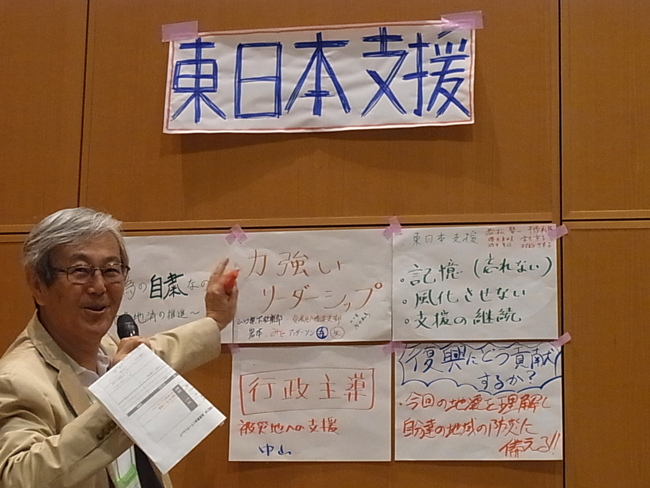 東日本支援
の自粛なの
地済の推進〜
力強い
リーダーシップ
東日本支援
・記憶(忘れない)
・風化させない
・支援の継続
行政主導
被災地への支援
中山
復興にどう貢献
するか?
・今回の地震を理解し
自分達の地域の防災に
備える!!